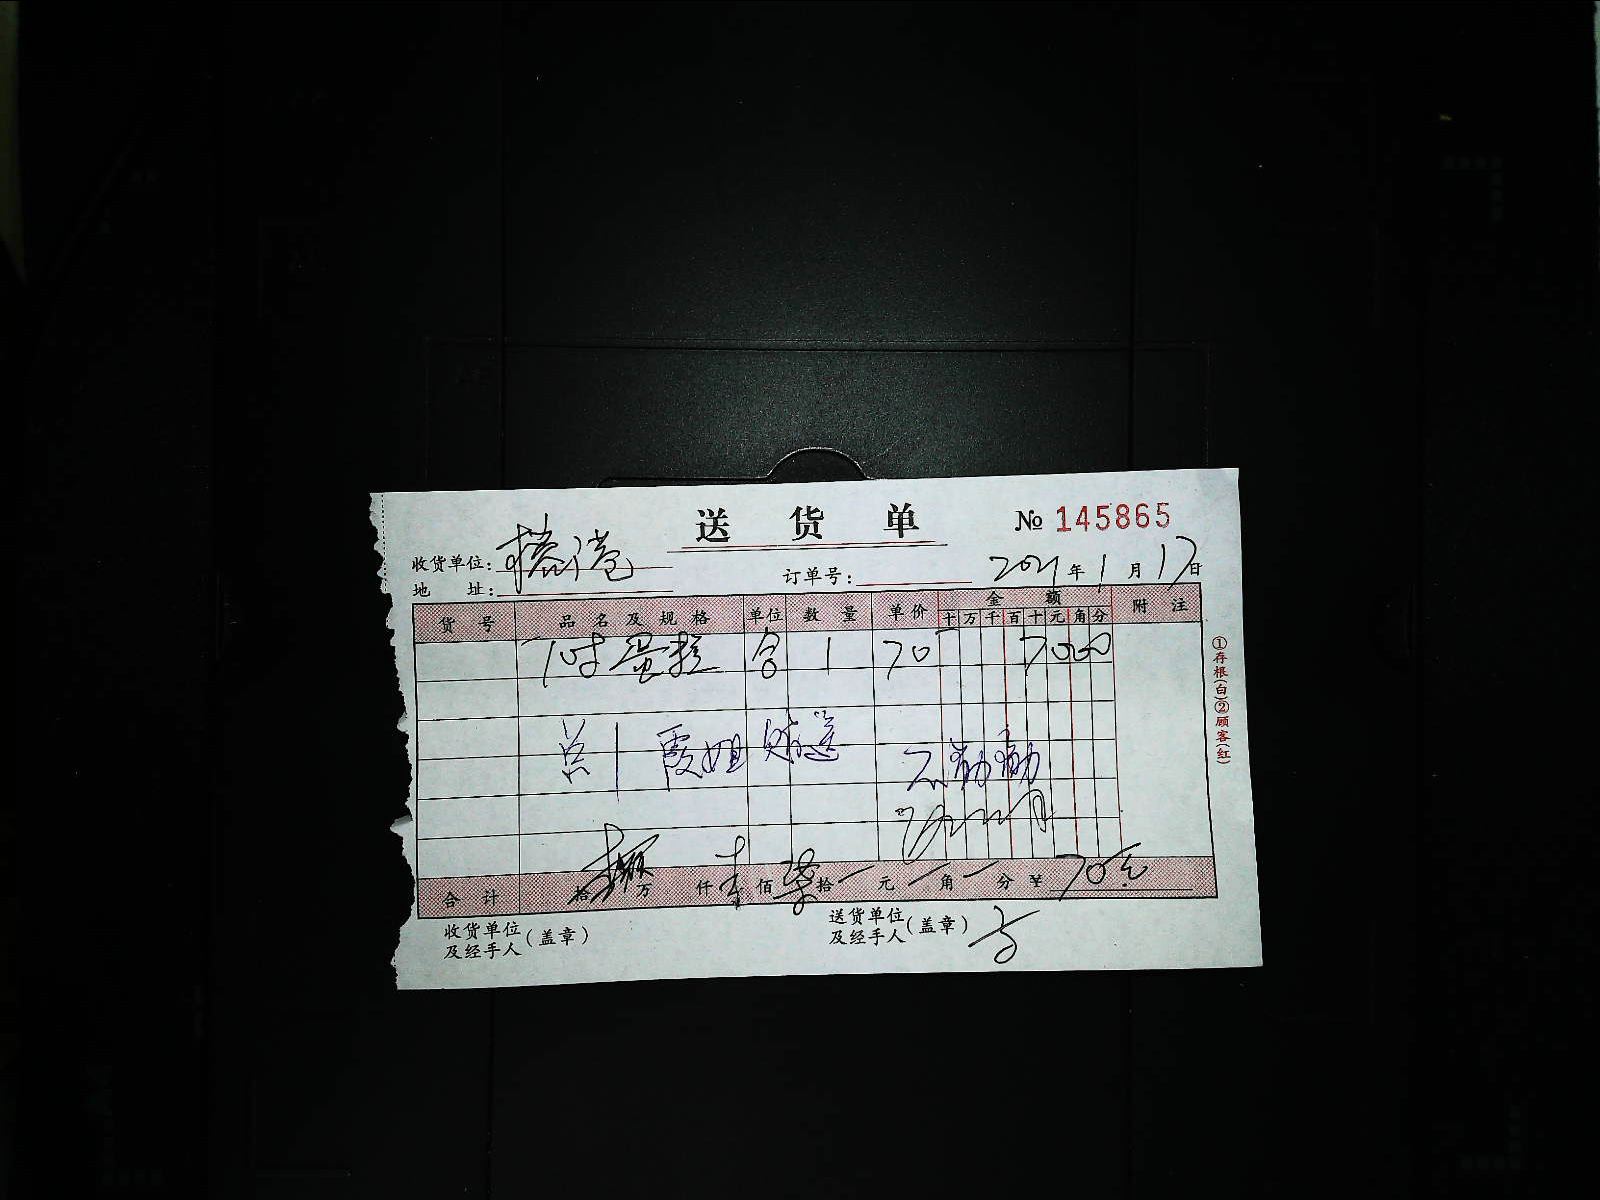 送货单 № 145865
收货单位：
地址： 订单号： 2021年1月17日
货号 品名及规格 单位 数量 单价 金额 附注
十万千百十元角分
7吋蛋糕 合 1 70 7000
总 霞姐 赠送
合计 拾 万 仟 佰 柒拾 元 角 分 ¥ 70元
收货单位及经手人（盖章）
送货单位及经手人（盖章）
①存根（白）②顾客（红）